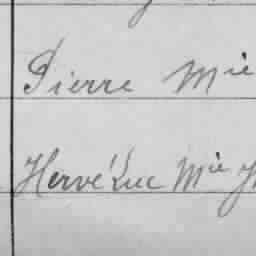 Pierre Mie
Hervé Luc Mie